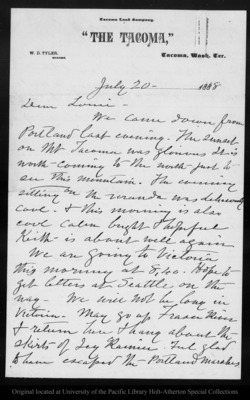 Tacoma Land Company.
"THE TACOMA,"
W. D. TYLER,
Tacoma, Wash. Ter.
July 20 - 1888
Dear Louie -
We came down from
Portland last evening. The sunset
on Mt Tacoma was glorious It is
worth coming to the north just to
see this mountain. The evening
sitting on the veranda was deliciously
cool. & this morning is also
cool calm bright & hopeful
Keith is about well again
We are going to Victoria
this morning at 8,40. Hope to
get letters at Seattle on the
way - We will not be long in
Victoria - May go up Fraser River
& return here & hang about the
skirts of Icy Rainier. Feel glad
to have escaped the Portland marshes
Original located at University of the Pacific Library Holt-Atherton Special Collections